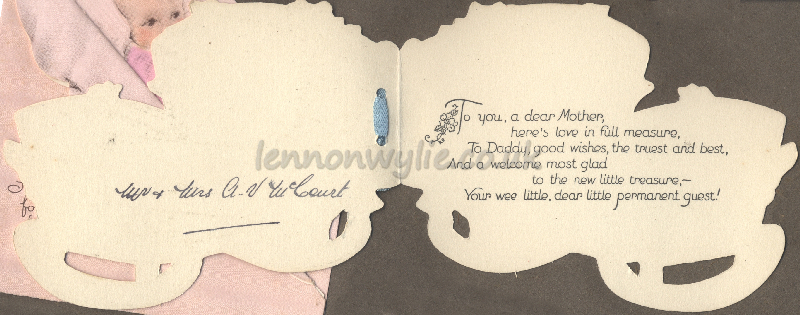 Mr & Mrs A-V McCourt
To you, a dear Mother,
here's love in full measure,
To Daddy, good wishes, the truest and best,
And a welcome most glad
to the new little treasure,~
Your wee little, dear little permanent guest!
lennonwylie.co.uk